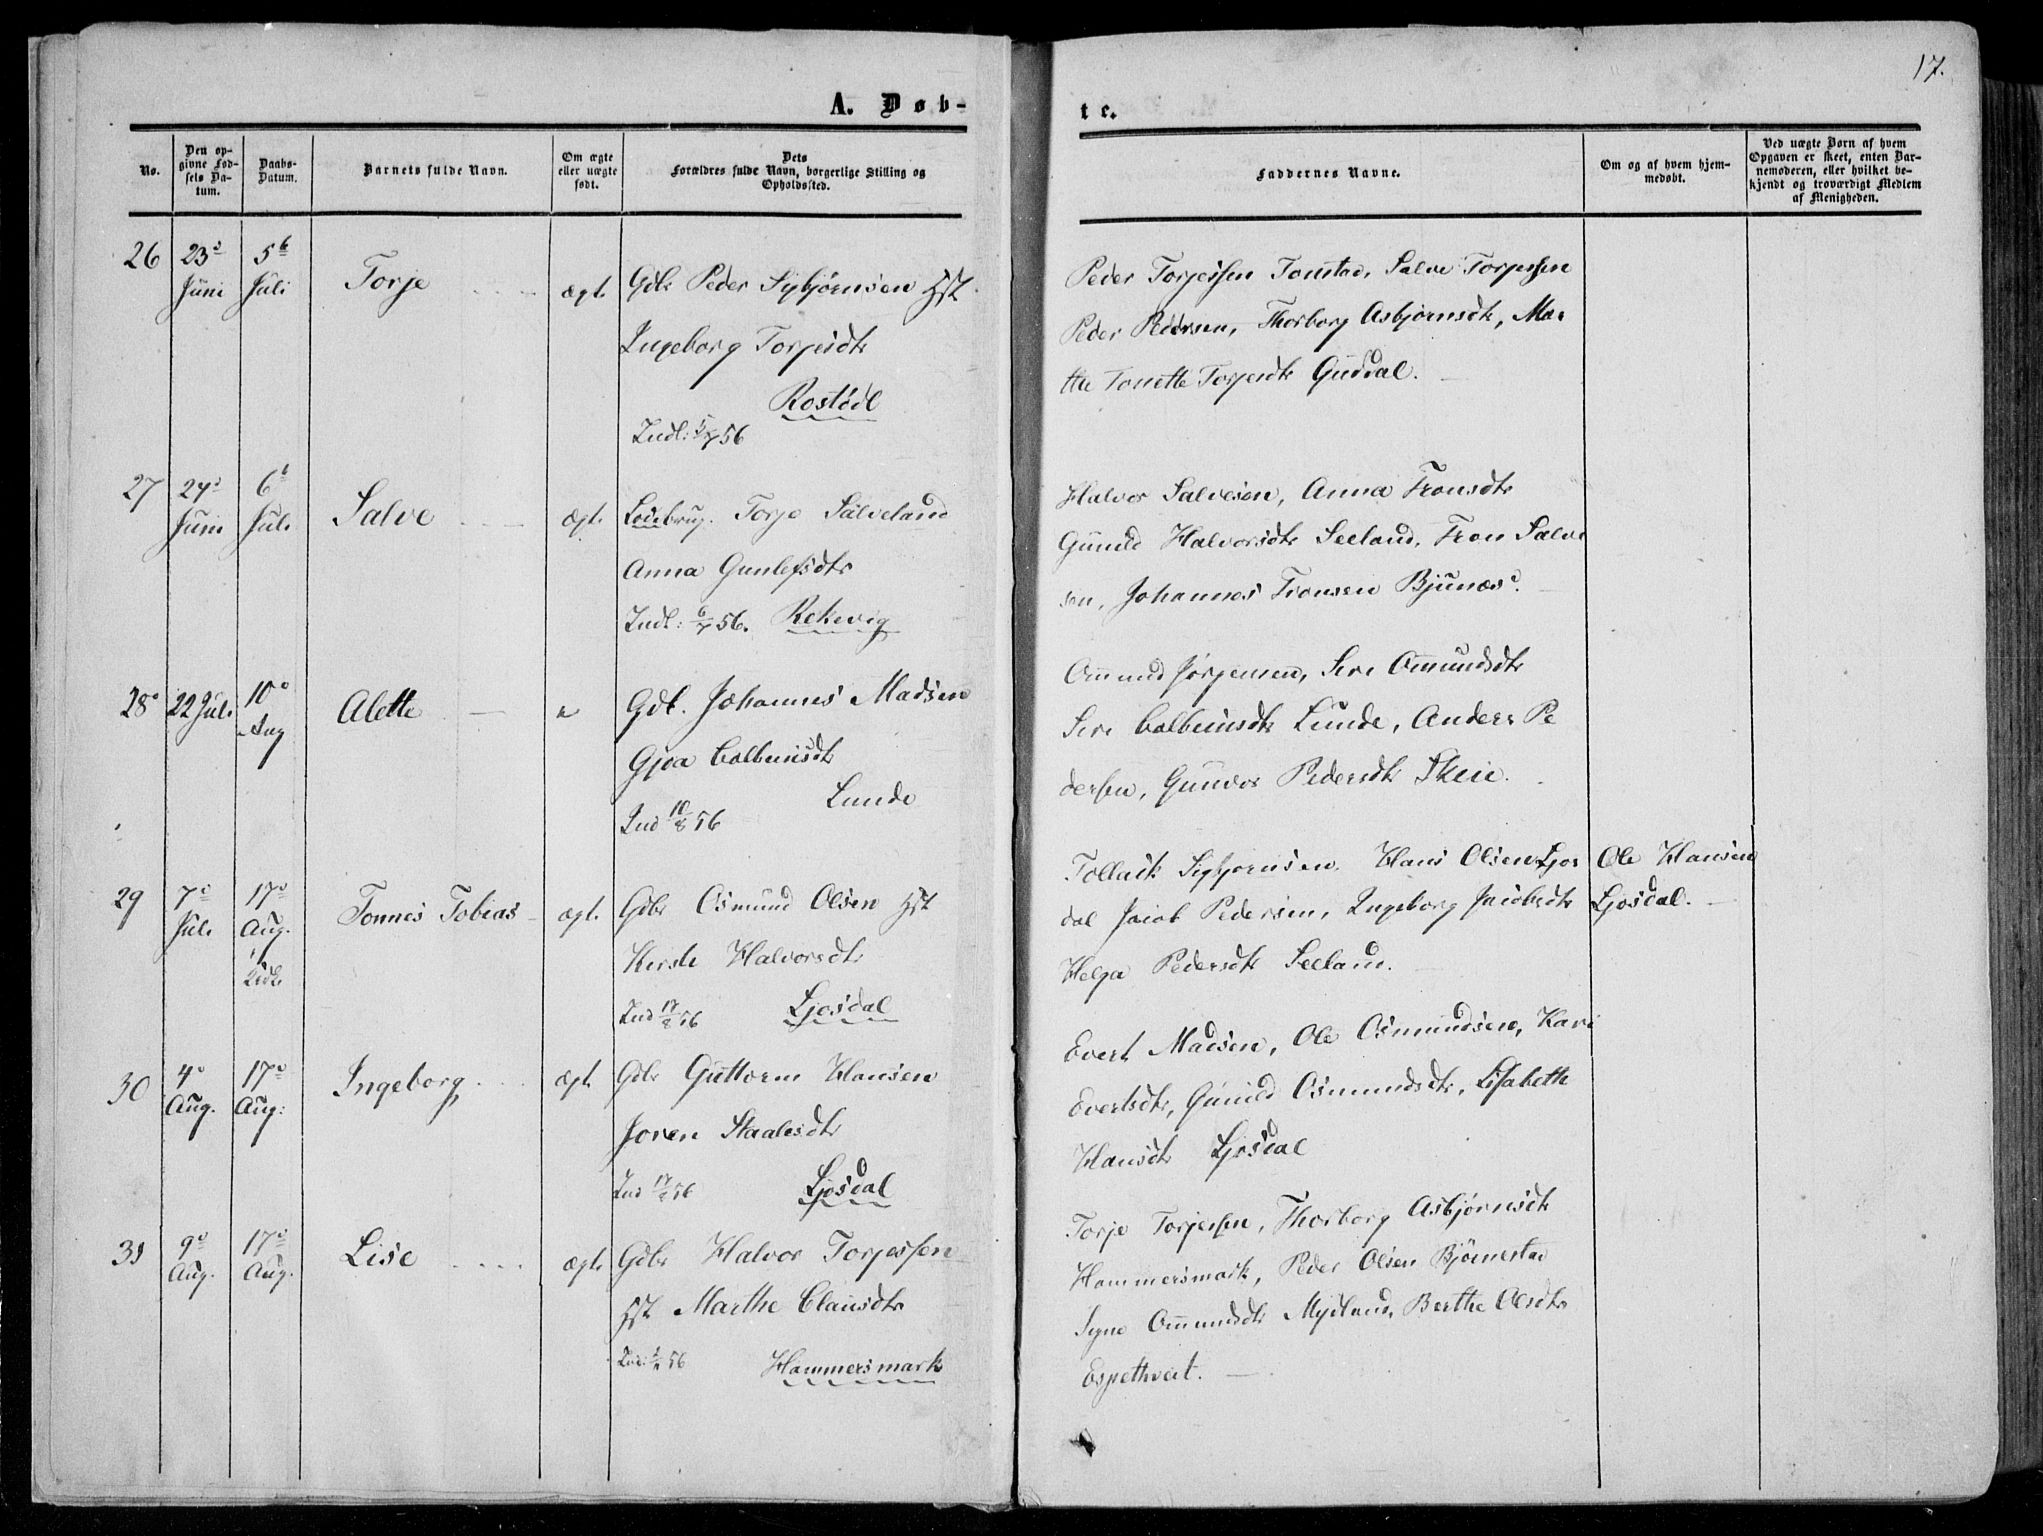 17.
A. Døb-
te.
No.
Den op-
givne Fød-
sels Da-
tum.
Daabs-
Datum.
Barnets fulde Navn.
Om ægte
eller uægte
født.
Dets
Forældres fulde Navn, borgerlige Stilling og
Opholdssted.
Faddernes Navne.
Om og af hvem hjem-
medøbt.
Ved uægte Børn af hvem
Opgaven er skeet, enten Bar-
nemoderen, eller hvilket be-
kjendt og troværdigt Medlem
af Menigheden.
26
23
Juni
5
Juli
Torje
ægt.
Gdbr Peder Sigbjørnsen Hst
Ingeborg Torjesdtr
Rostødl
Indl: 5/7 56
Peder Torjessen Tonstad, Salve Torjessen
Peder Pedersen, Thorborg Asbjørnsdtr, Mar
the Tonette Torjesdtr Guddal.
27
24
Juni
6
Juli
Salve
ægt.
Torje Salveland
Anna Gunlefsdtr
Indl: 6/7 56. Rekevig
Halvor Salvesen, Anna Tronsdtr
Gunild Halvorsdtr Seeland, Tron Salve
sen, Johannes Tronsen Bjunæs.
28
22 Juli
10
Aug
Alette
Gdb. Johannes Madsen
Gjoa Colbeinsdtr
Lunde
Ind 10/8 56
Ommund Jørgensen, Siri Ommundsdtr
Siri Colbeinsdtr Lunde, Anders Pe
dersen, Gunvor Pedersdtr Skeie.
29
7
Juli
17
Aug.
Tonnes Tobias
ægt.
Gdbr Osmund Olsen Hst
Kirste Halvorsdtr
Ind 17/8 56 Ljosdal
Tollack Sigbjørnsen, Hans Olsen Ljos
dal Jacob Pedersen, Ingeborg Jacobsdtr
Helga Pedersdtr Seeland.
Ole Hansen
Ljosdal.
30
4
Aug.
17
Aug:
Ingeborg
ægt
Gdbr Guttorm Hansen
Joren Staalesdtr
Ind 17/8 56 Ljosdal
Evert Madsen, Ole Osmundsen, Kari
Evertsdtr, Gunild Osmundsdtr, Lisabeth
Hansdtr Ljosdal
31
9
Aug.
17
Aug.
Lise
ægt.
Gdbr Halvor Torjessen
Hst Marthe Clausdtr
56 Hammersmark
Torje Torjessen, Thorborg Asbjørnsdtr
Hammersmark, Peder Olsen Bjørnestad
Signe Ommundsdtr Mydland, Berthe Olsdtr
Espethveit.